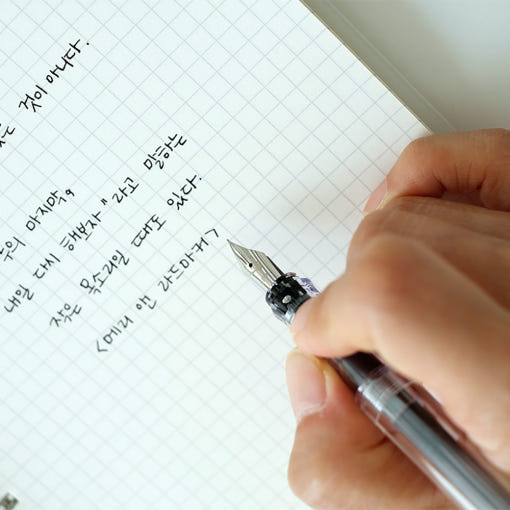 것이 아니다.
마지막,
내일 다시 해보자" 라고 말하는
작은 목소리일 때도 있다.
<메리 앤 라드마커>